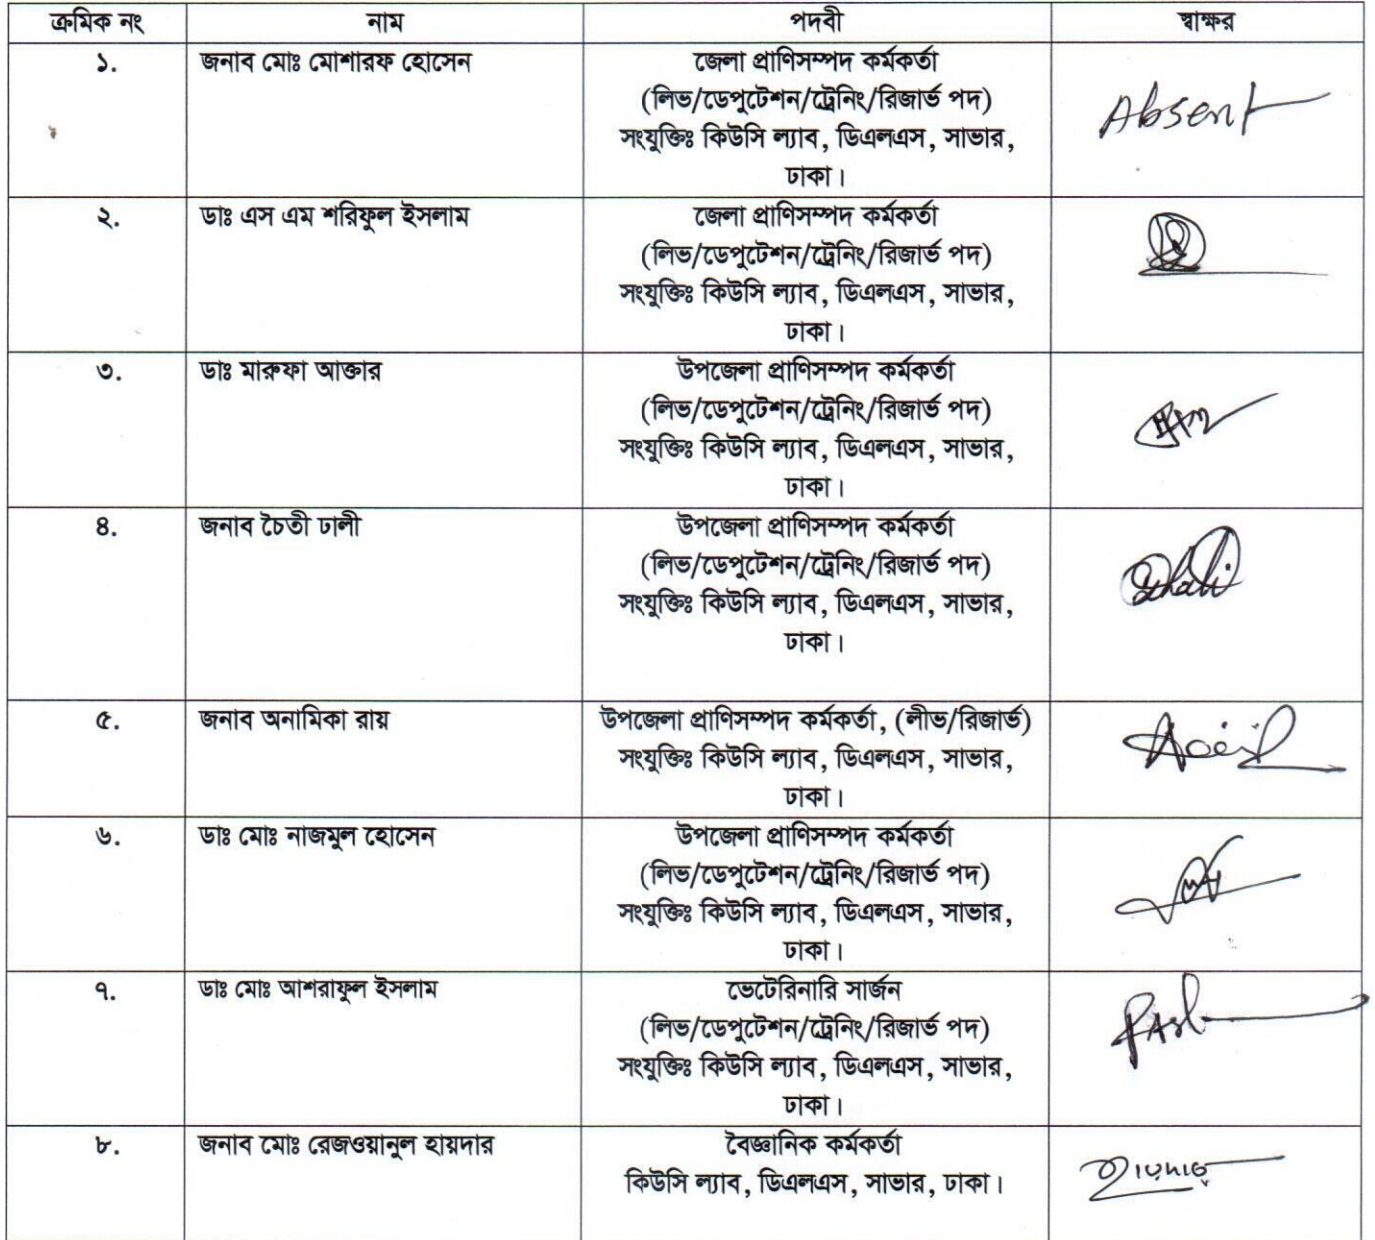 ক্রমিক নং নাম পদবী স্বাক্ষর
১. জনাব মোঃ মোশারফ হোসেন জেলা প্রাণিসম্পদ কর্মকর্তা
(লিভ/ডেপুটেশন/ট্রেনিং/রিজার্ভ পদ) Absent
সংযুক্তিঃ কিউসি ল্যাব, ডিএলএস, সাভার,
ঢাকা।
২. ডাঃ এস এম শরিফুল ইসলাম জেলা প্রাণিসম্পদ কর্মকর্তা
(লিভ/ডেপুটেশন/ট্রেনিং/রিজার্ভ পদ)
সংযুক্তিঃ কিউসি ল্যাব, ডিএলএস, সাভার,
ঢাকা।
৩. ডাঃ মারুফা আক্তার উপজেলা প্রাণিসম্পদ কর্মকর্তা
(লিভ/ডেপুটেশন/ট্রেনিং/রিজার্ভ পদ)
সংযুক্তিঃ কিউসি ল্যাব, ডিএলএস, সাভার,
ঢাকা।
৪. জনাব চৈতী ঢালী উপজেলা প্রাণিসম্পদ কর্মকর্তা
(লিভ/ডেপুটেশন/ট্রেনিং/রিজার্ভ পদ)
সংযুক্তিঃ কিউসি ল্যাব, ডিএলএস, সাভার, Dhali
ঢাকা।
৫. জনাব অনামিকা রায় উপজেলা প্রাণিসম্পদ কর্মকর্তা, (লীভ/রিজার্ভ)
সংযুক্তিঃ কিউসি ল্যাব, ডিএলএস, সাভার,
ঢাকা।
৬. ডাঃ মোঃ নাজমুল হোসেন উপজেলা প্রাণিসম্পদ কর্মকর্তা
(লিভ/ডেপুটেশন/ট্রেনিং/রিজার্ভ পদ)
সংযুক্তিঃ কিউসি ল্যাব, ডিএলএস, সাভার,
ঢাকা।
৭. ডাঃ মোঃ আশরাফুল ইসলাম ভেটেরিনারি সার্জন
(লিভ/ডেপুটেশন/ট্রেনিং/রিজার্ভ পদ)
সংযুক্তিঃ কিউসি ল্যাব, ডিএলএস, সাভার,
ঢাকা।
৮. জনাব মোঃ রেজওয়ানুল হায়দার বৈজ্ঞানিক কর্মকর্তা
কিউসি ল্যাব, ডিএলএস, সাভার, ঢাকা। হায়দার